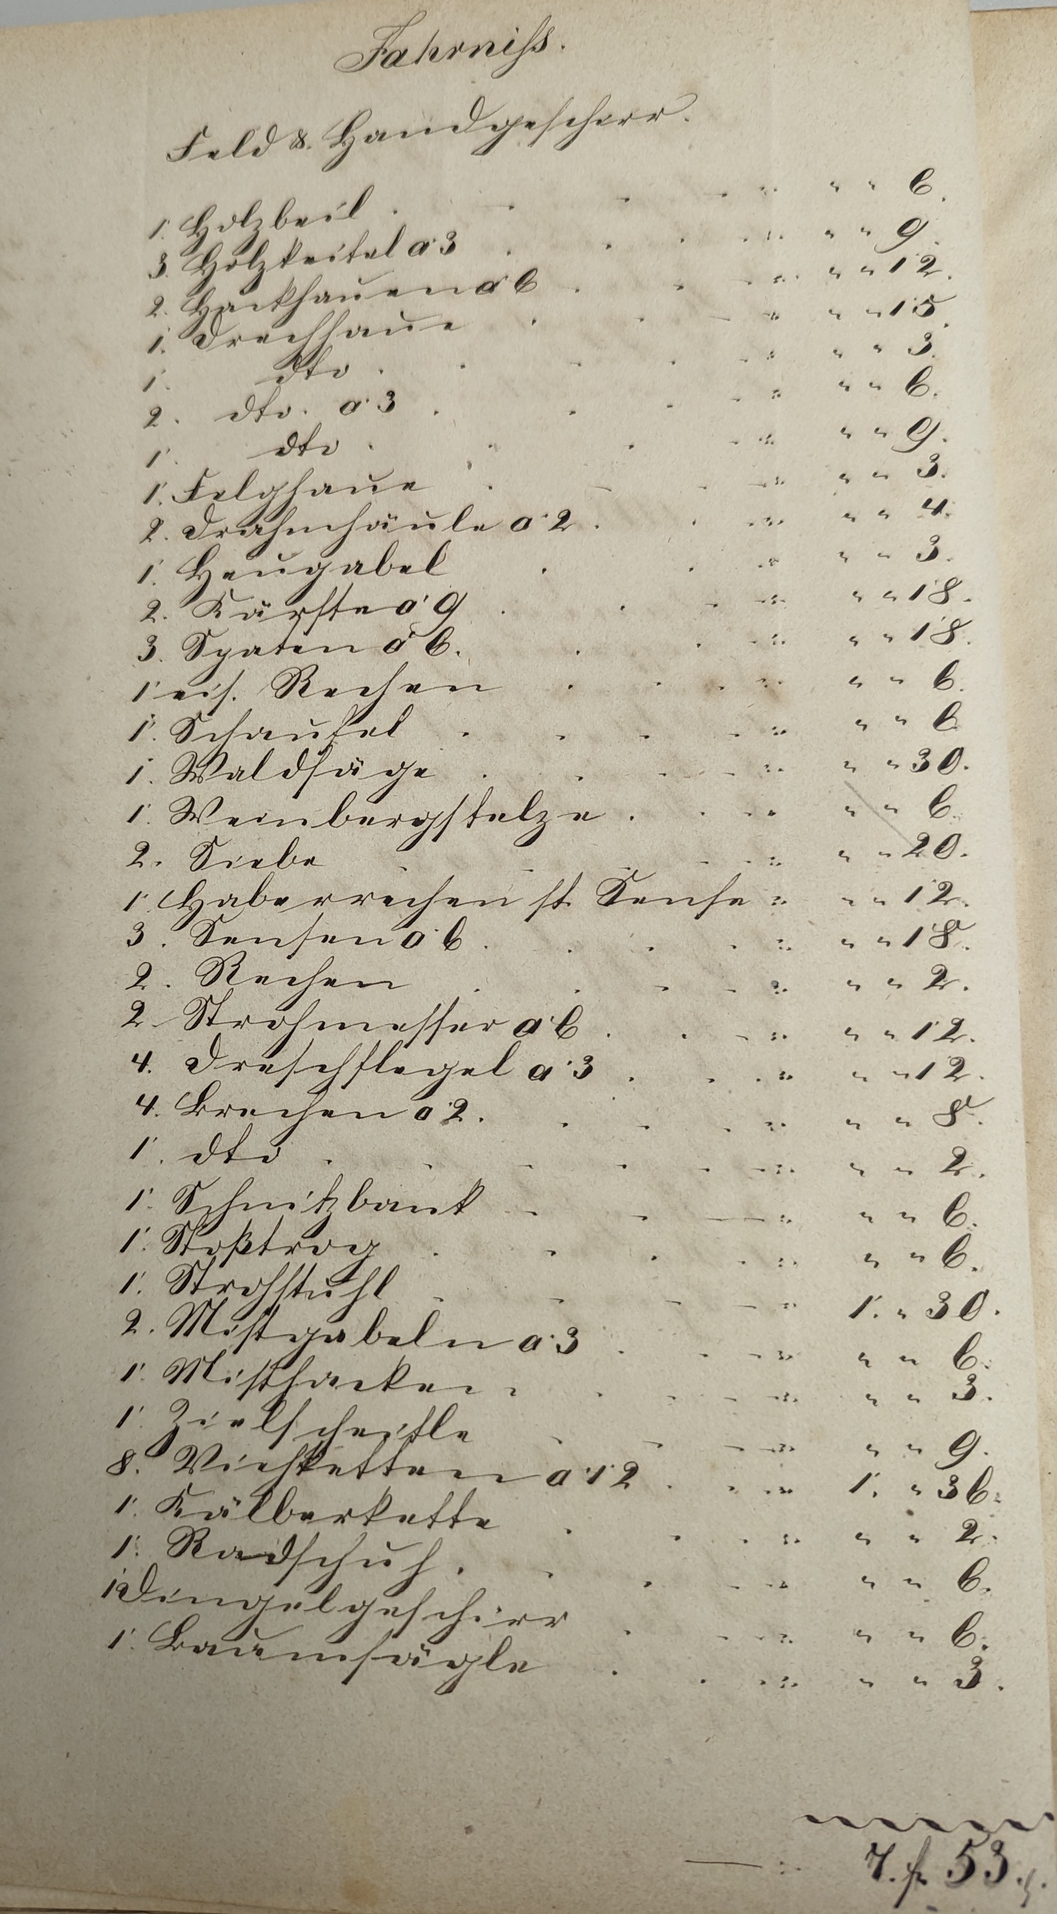 Fahrniß.
Feld & Handgeschirr.
1. Holzbeil . . . . " " 6.
3. Holzkeitel a 3 . . . " " 9.
2. Hackhauen a 6 . . . " " 12.
1. Drechhaue . . . " " 15.
1. dto . . . . " " 3.
2. dto. a 3 . . . " " 6.
1. dto . . . " " 9.
1. Felghaue . . . " " 3.
2. Drahnhäule a 2 . . . " " 4.
1. Heugabel . . . " " 3.
2. Kärste a 9 . . . " " 18.
3. Spaten a 6. . . . " " 18.
1 eis. Rechen . . . " " 6.
1. Schaufel . . . . " " 6
1. Waldsäge . . . . " " 30.
1. Weinbergstelze . . . " " 6.
2. Siebe . . . . " " 20.
1. Haberrechen st. Sense " " 12.
3. Sensen a 6 . . . . " " 18.
2. Rechen . . . . " " 2.
2 Strohmesser a 6 . . . " " 12.
4. Dreschflegel a 3 . . . " " 12.
4. Brechen a 2. . . . " " 8.
1. dto . . . . " " 2.
1. Schnitzbank . . . " " 6.
1. Stoßtrog . . . . " " 6.
1. Strohstuhl . . . . 1. " 30.
2. Mistgabeln a 3 . . . " " 6.
1. Misthacken . . . . " " 3.
1. Zielscheitle . . . " " 9.
8. Viehketten a 12 . . . 1. " 36.
1. Kälberkette . . . " " 2.
1. Radschuh . . . . " " 6.
1 Dingelgeschirr . . . " " 6.
1. Baumsägle . . . " " 3.
7. f 53.